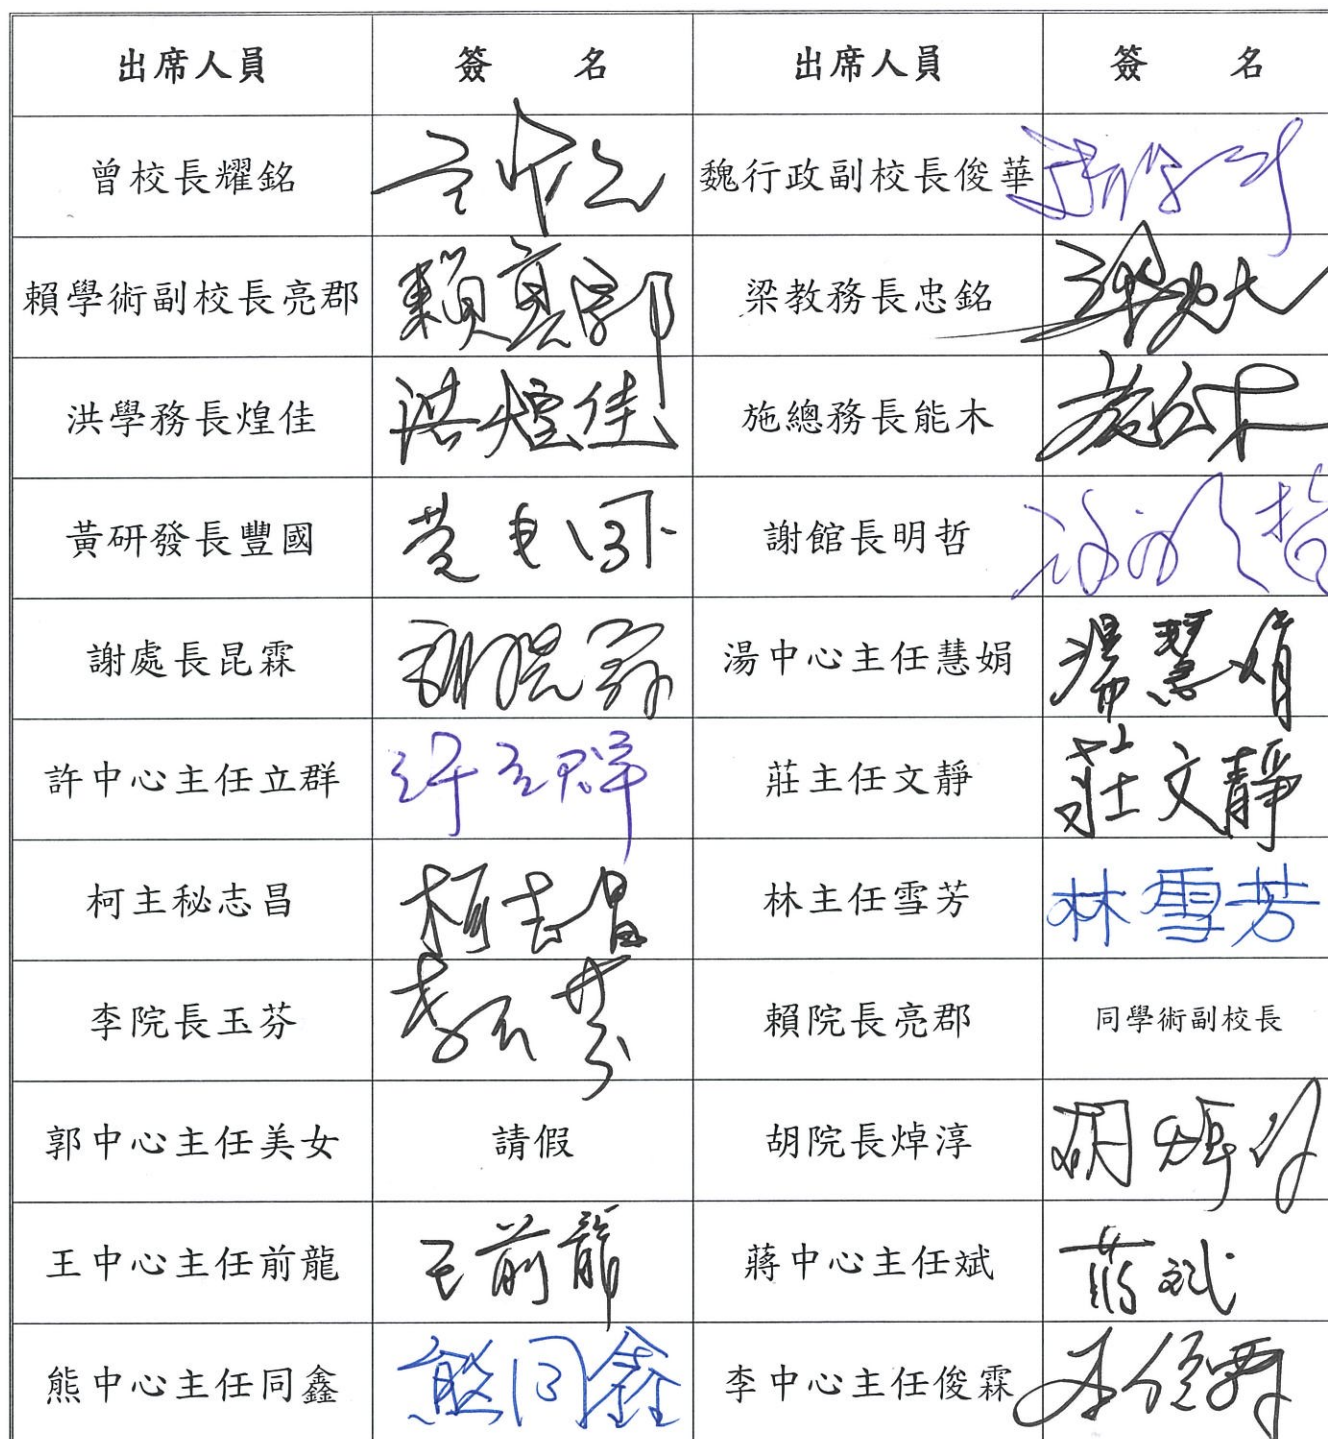 出席人員 簽 名 出席人員 簽 名
曾校長耀銘 魏行政副校長俊華
賴學術副校長亮郡 賴亮郡 梁教務長忠銘
洪學務長煌佳 洪煌佳 施總務長能木
黃研發長豐國 謝館長明哲
謝處長昆霖 湯中心主任慧娟 湯慧娟
許中心主任立群 許立群 莊主任文靜 莊文靜
柯主秘志昌 柯志昌 林主任雪芳 林雪芳
李院長玉芬 賴院長亮郡 同學術副校長
郭中心主任美女 請假 胡院長焯淳
王中心主任前龍 王前龍 蔣中心主任斌 蔣斌
熊中心主任同鑫 熊同鑫 李中心主任俊霖